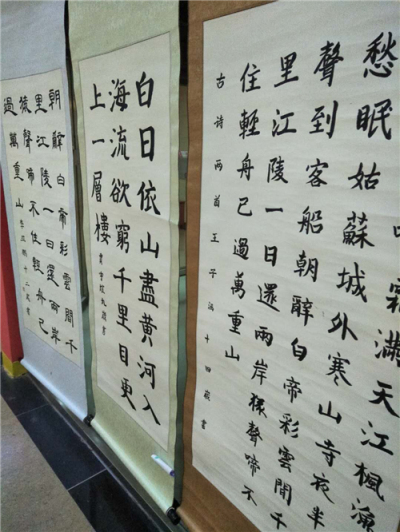 霜滿天江楓漁
愁眠姑蘇城外寒山寺夜半
聲到客船朝辭白帝彩雲間千
里江陵一日還兩岸猿聲啼不
住輕舟已過萬重山
古诗兩首王子涵十四歲書
白日依山盡黄河入
海流欲窮千里目更
上一層樓
九歲書
朝辭白帝彩雲間千
里江陵一日還兩岸
猿聲啼不住輕舟已
過萬重山
十二歲書